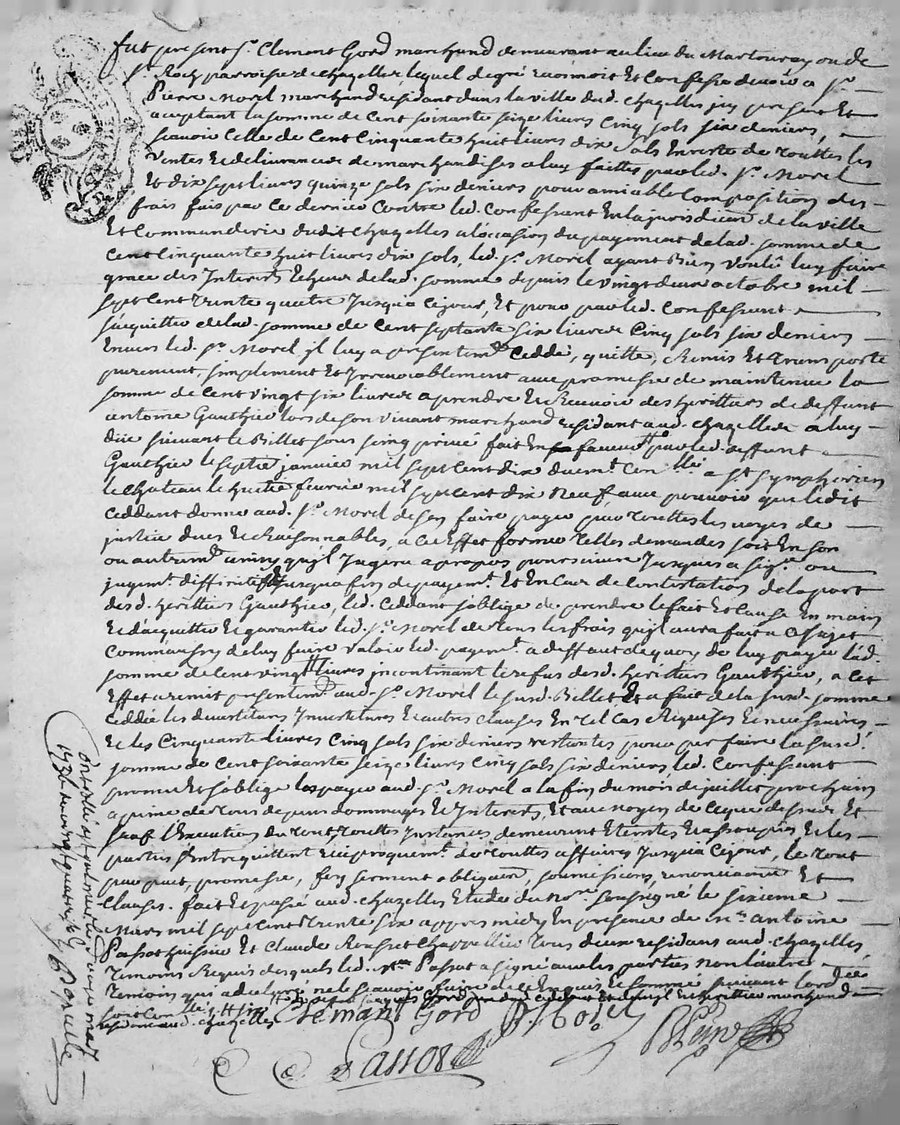 fut present sr. Clement Gord marchand demeurant au lieu du Martouray ou de
st. Roch parroisse de chazelles lequel de gré reconnoit Et Confesse devoir a sr.
Pierre Morel marchand residant dans la ville dud. chazelles icy present Et
acceptant la somme de Cent soixante seize livres Cinq sols six deniers,
scavoir Celle de Cent Cinquante huit livres dix sols En reste de touttes les
Ventes Et delivrances de marchandises a luy faittes par led. sr. Morel
Et dix sept livres quinze sols six deniers pour amiable Composition des
frais fais par Ce dernier Contre led. Confessant En la jurisdiction de la ville
Et Commanderie dudit Chazelles a loccasion du payement de lad. somme de
Cent Cinquante huit livres dix sols, led. sr. Morel ayant Bien voulû luy faire
grace des Interests de lad. somme depuis le vingt deux octobre mil
sept Cent trente quatre Jusqu'a Cejour, Et pour par led. Confessant
s'acquitter de lad. somme de Cent septante six livres Cinq sols six deniers
Envers led. sr. Morel il luy a presentemt. Ceddé, quitté, Remis Et transporté
purement, simplement Et Irrevocablement avec promesse de maintenue la
somme de Cent vingt six livres a prendre Et Recevoir des heritiers de deffunt
antoine Gauthier lors de son vivant marchand residant aud. chazelles a luy
düe suivant le Billet sous seing privé fait En sa faveur par led. deffunt
Gauthier le septe janvier mil sept cent dix neuf Con llé a st. symphorien
le chateau le huite fevrier mil sept cent dix Neuf, avec pouvoir que ledit
Ceddant donne aud. sr. Morel de s'en faire payer par touttes les voyes de
justice dues Et Raisonnables, a Cet Effet former telles demandes soit En son
ou autremt. ainsy qu'il Jugera a propos poursuivre Jusques a
jugemt. diffinitif Jusqu'a fin de payemt. Et En Cas de Contestation de la part
desd. heritiers Gauthier, led. Ceddant s'oblige de prendre le fait Et Cause En main
Et d'acquitter Et garantir led. sr. Morel de tous les frais qu'il aura fait a Ce sujet
Comm'aussy de luy faire valoir led. payemt. a deffaut de quoy de luy payer lad.
somme de Cent vingt livres incontinant le refus desd. heritiers Gauthier, a Cet
Effet a remit presentemt. aud. sr. Morel le susd. Billet Et a fait de la susd. somme
Ceddée les devestitures Investitures Et autres clauses En tel Cas Requises Et necessaires
Et les Cinquante livres Cinq sols six deniers restantes pour parfaire la susd.
somme de Cent soixante seize livres Cinq sols six deniers led. Confessant
promet Et s'oblige les payer aud. sr. Morel a la fin du mois de juillet prochain
a peine de tous depens dommages Et Interests, Et au moyen de Ce que dessus Et
sauf l'Execution du tout touttes Instances demeurent Eteintes Et assoupies Et les
parties s'Entrequittent reciproquemt. de touttes affaires Jusqu'a Cejour, le tout
par pact, promesse, foy serment obligation, soumissions, renonciation Et
Clauses. fait Et passé aud. chazelles Etude du Nore. soussigné le sixieme
Mars mil sept Cent trente six appres midy En presence de Mre. antoine
Passot huissier Et Claude Rousset chappellier tous deux residans aud. chazelles
temoins Requis desquels led. Mre. Passot a signé avec les parties non l'autre
temoin qui a declaré ne le scavoir faire de Ce Enquis Et somme suivant l'ordce
soit Con llé
residant aud. chazelles
Clemant Gord P. Morel
Passot
Con llé a st
1736 Receu